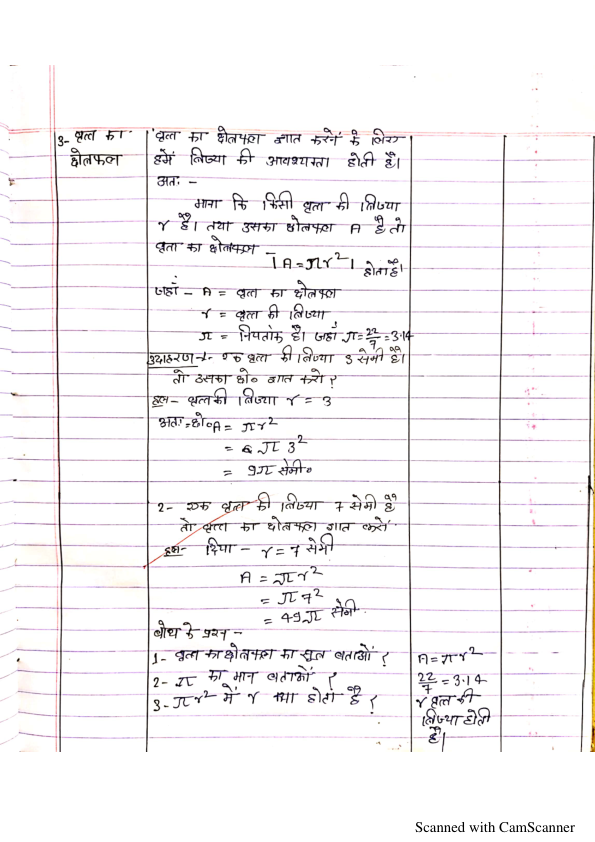 3- वृत्त का
क्षेत्रफल
वृत्त का क्षेत्रफल ज्ञात करने के लिए
हमें त्रिज्या की आवश्यकता होती है।
अतः -
माना कि किसी वृत्त की त्रिज्या
r है। तथा उसका क्षेत्रफल A है तो
वृत्त का क्षेत्रफल -
A = πr² होता है।
जहाँ - A = वृत्त का क्षेत्रफल
r = वृत्त की त्रिज्या
π = नियतांक है। जहाँ π = 22/7 = 3.14
उदाहरण-1- एक वृत्त की त्रिज्या 3 सेमी है।
तो उसका क्षे० ज्ञात करो?
हल- वृत्त की त्रिज्या r = 3
अतः क्षे० A = πr²
= π 3²
= 9π सेमी०
2- एक वृत्त की त्रिज्या 7 सेमी है
तो वृत्त का क्षेत्रफल ज्ञात करें
हल- दिया - r = 7 सेमी
A = πr²
= π 7²
= 49π सेमी.
बोध के प्रश्न -
1- वृत्त का क्षेत्रफल का सूत्र बताओं?
2- π का मान बताओं?
3- πr² में r क्या होता है?
A = πr²
22/7 = 3.14
r वृत्त की
त्रिज्या होती
है।
Scanned with CamScanner